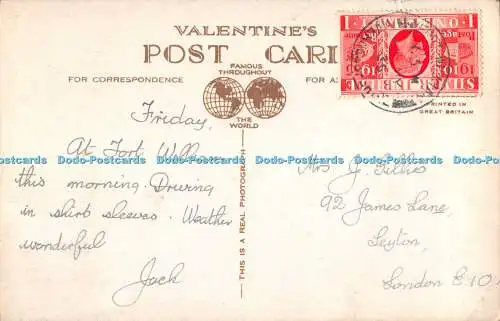 VALENTINE'S
POST CARD
FAMOUS
THROUGHOUT
THE
WORLD
FOR CORRESPONDENCE
FOR
PRINTED IN
GREAT BRITAIN
THIS IS A REAL PHOTOGRAPH
POSTAGE
1910 1935
SILVER JUBILEE
Friday,
At Fort Will
this morning. Driving
in shirt sleeves. Weather
wonderful
Jack
Mrs J. Gillies
92 James Lane,
Leyton,
London E10
Dodo-Postcards Dodo-Postcards Dodo-Postcards Dodo-Postcards Dodo-Postcards Dodo-Postcards Dodo-Postcards